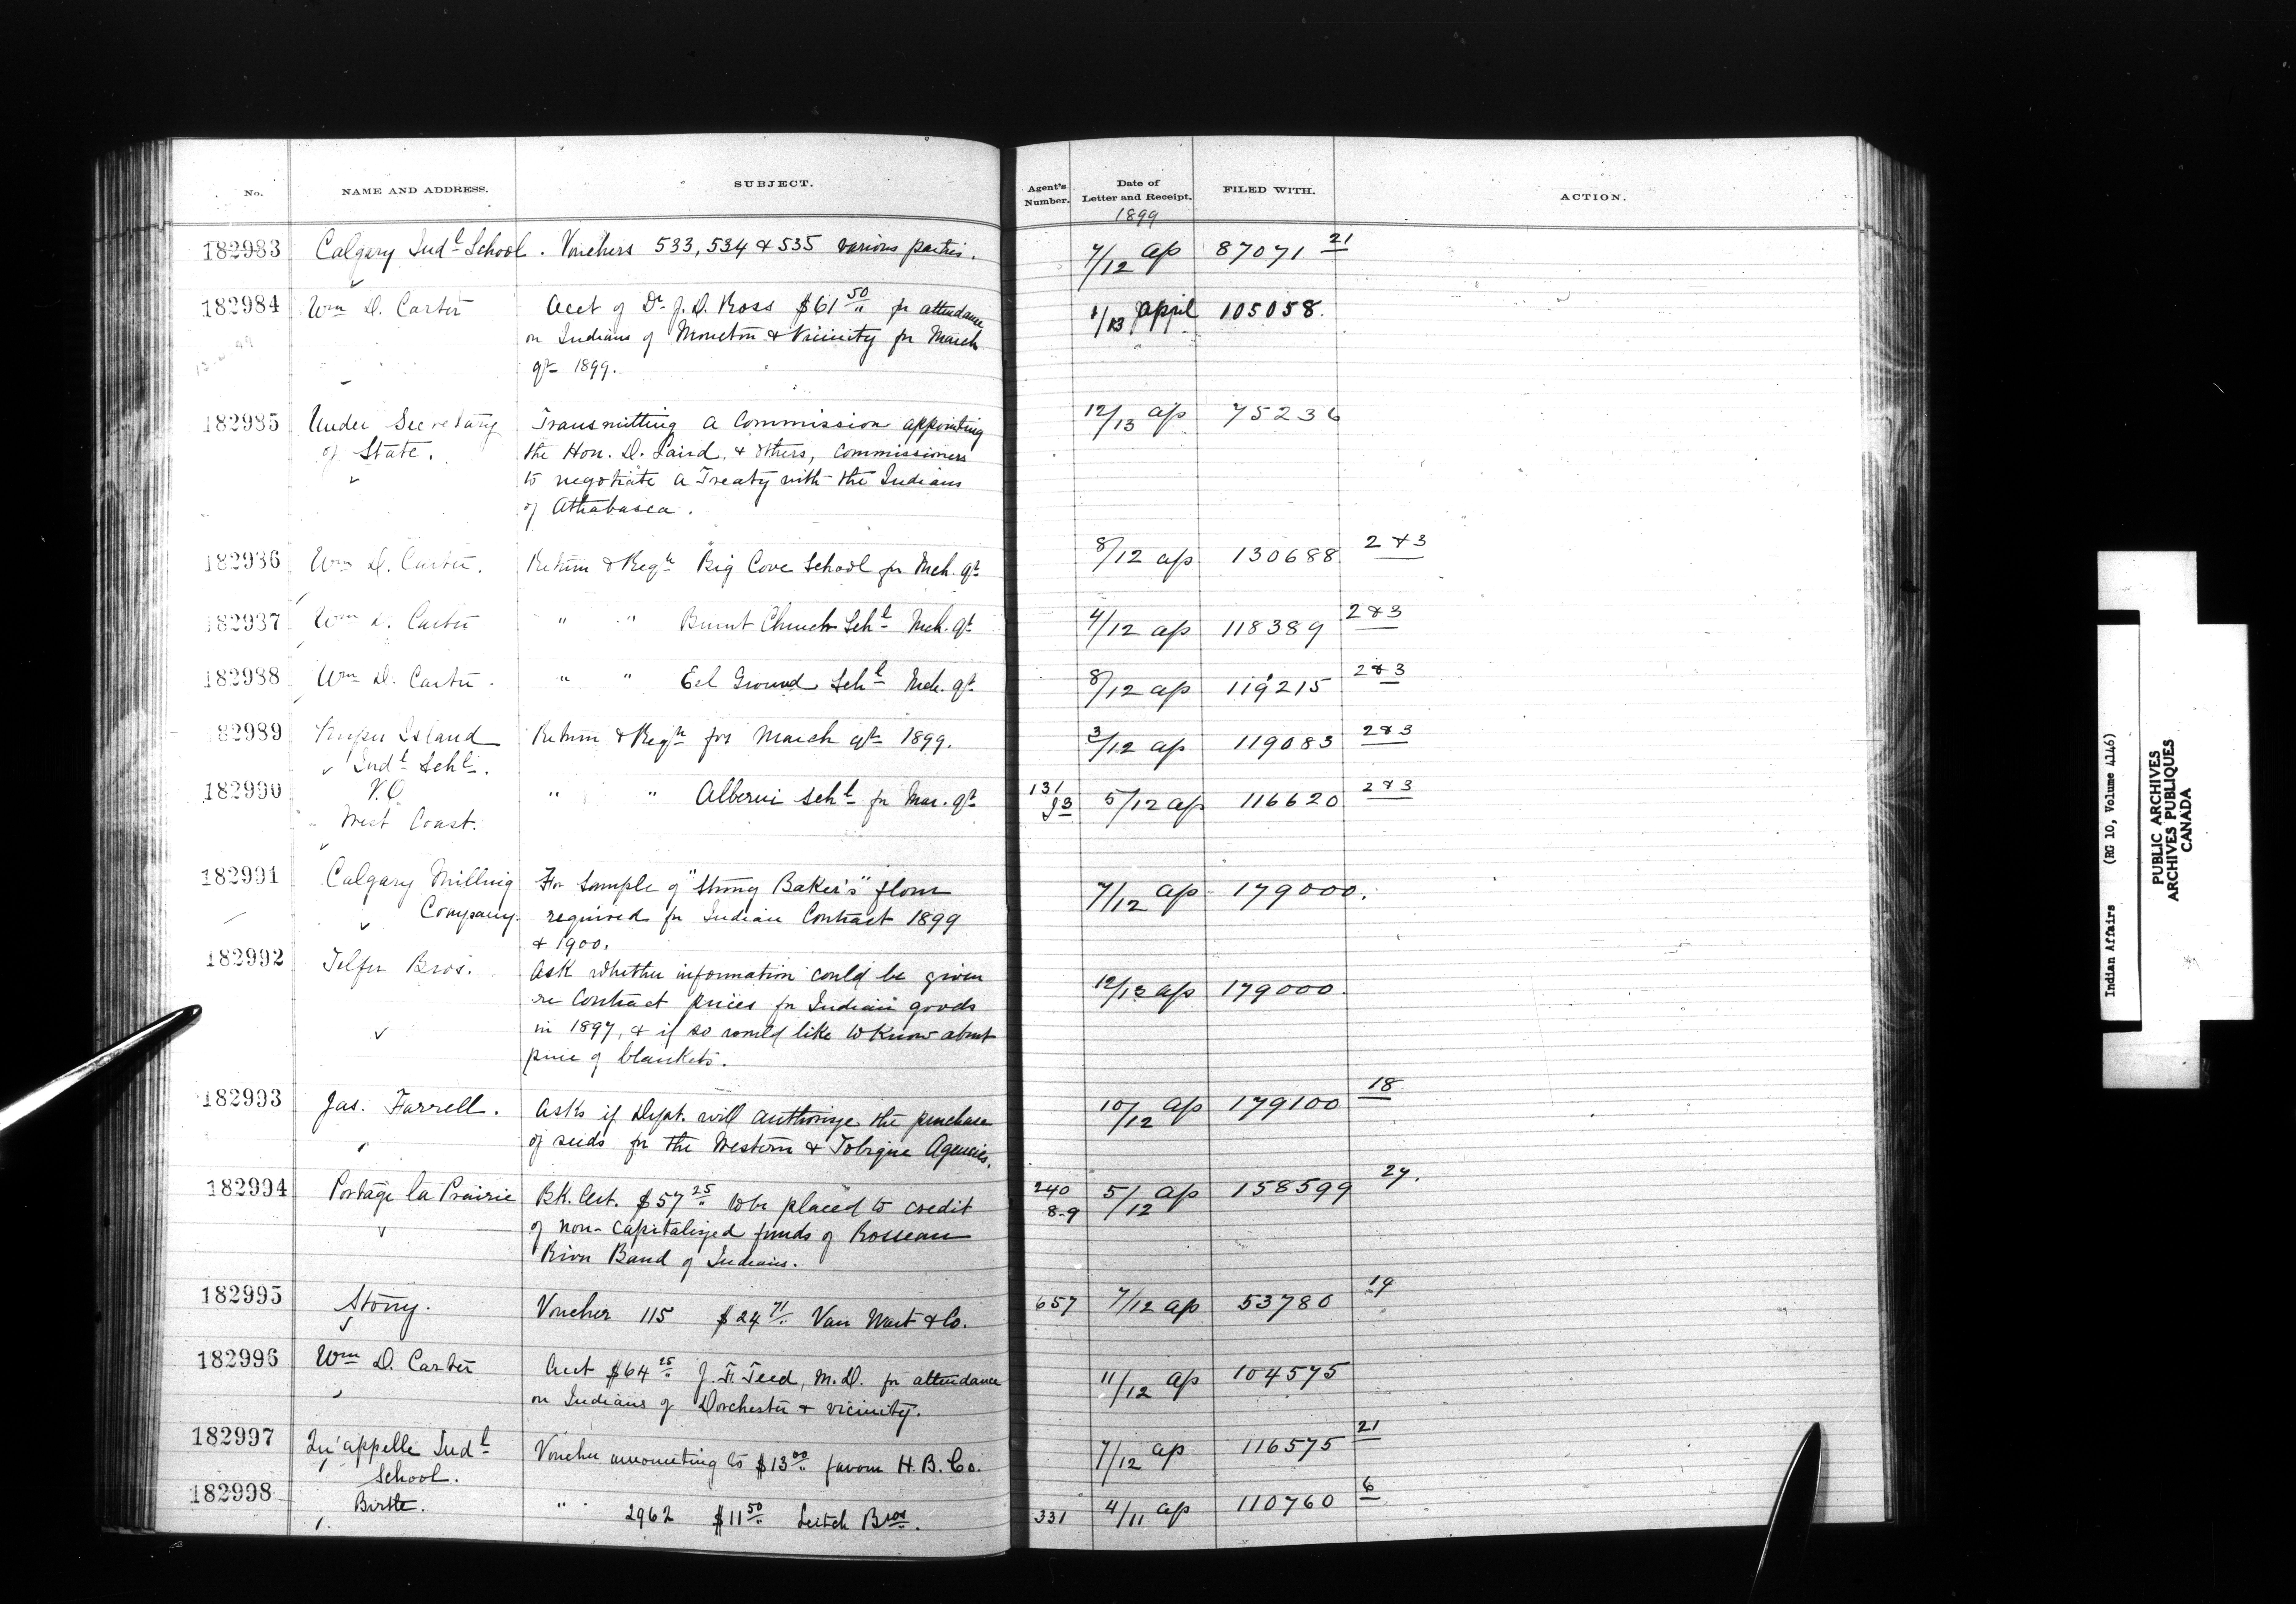 No. NAME AND ADDRESS. SUBJECT. Agent's Number. Date of Letter and Receipt. FILED WITH. ACTION.
1899
182983 Calgary Indl School. Vouchers 533, 534 & 535 various parties. 7/12 ap 87071 21
182984 Wm D. Carter Acct of Dr J. D. Ross $61 50 for attendance 1/13 April 105058.
on Indians of Moncton & Vicinity for March
qr 1899.
182985 Under Secretary Transmitting a Commission appointing 12/13 ap 75236
of State. the Hon. D. Laird, & others, Commissioners
to negotiate a Treaty with the Indians
of Athabasca.
182986 Wm D. Carter. Return & Regr Big Cove School for Mch. qr 8/12 ap 130688 2 & 3
182987 Wm D. Carter " " Burnt Church Schl Mch. qr 4/12 ap 118389 2 & 3
182988 Wm D. Carter. " " Eel Ground Schl Mch. qr 8/12 ap 119215 2 & 3
182989 Kuper Island Return & Regr for March qr 1899. 3/12 ap 119083 2 & 3
Indl Schl.
182990 V.O " " Alberni Schl for Mar. qr 131 5/12 ap 116620 2 & 3
West Coast.
182991 Calgary Milling For sample of "Strong Baker's" flour 7/12 ap 179000.
Company. required for Indian Contract 1899
& 1900.
182992 Telfer Bros. Ask whether information could be given 12/13 ap 179000.
re Contract prices for Indian goods
in 1897, & if so would like to know about
price of blankets.
182993 Jas. Farrell. Asks if Dept. will authorize the purchase 10/12 ap 179100 18
of seeds for the Western & Tobique Agencies.
182994 Portage la Prairie Bk. Cert. $57 25 to be placed to credit 240 5/12 ap 158599 27.
of non-capitalized funds of Rosseau 8-9
River Band of Indians.
182995 Stony. Voucher 115 $24 71 Van Wart & Co. 657 7/12 ap 53780 19
182996 Wm D. Carter Acct $64 25 J. F. Teed, M.D. for attendance 11/12 ap 104575
on Indians of Dorchester & vicinity.
182997 Qu'appelle Indl Voucher amounting to $13 00 favour H. B. Co. 7/12 ap 116575 21
School.
182998 Birtle. " 2962 $11 50 Leitch Bros. 331 4/11 ap 110760 6
Indian Affairs (RG 10, Volume 4146)
PUBLIC ARCHIVES
ARCHIVES PUBLIQUES
CANADA